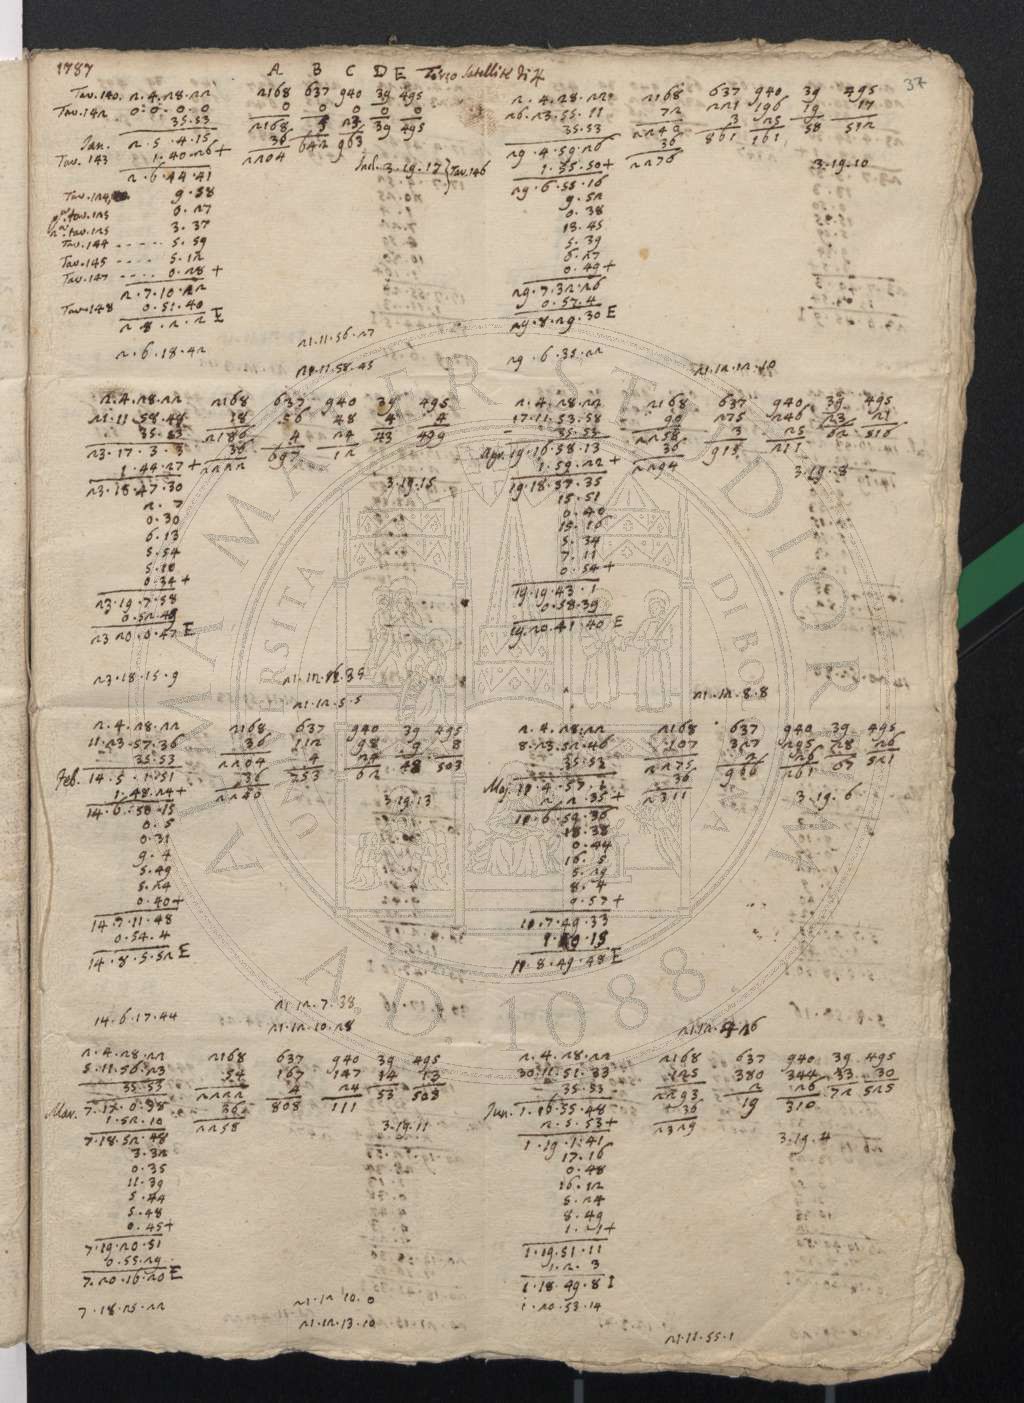 1787 A B C D E Terzo Satellite di ♃ 37
Tav. 140. 2. 4. 28. 22 2168 637 940 39 495
Tav. 142 0. 0. 0. 0 0 0 0 0 0
35. 53 2168 5 23 39 495
Jan. 2. 5. 4. 15 36 642 963
Tav. 143 1. 40. 26 + 2204
2. 6. 44. 41 Incl. 3. 19. 17 Tav. 146
Tav. 124 9. 58
0. 27
3. 37
Tav. 144 ---- 5. 59
Tav. 145 ---- 5. 12
Tav. 147 ---- 0. 28 +
2. 7. 10. 22
Tav. 148 0. 51. 40
2. 8. 2. 2 E
2. 6. 18. 42
21. 11. 56. 27
21. 11. 58. 45
2. 4. 28. 22 2168 637 940 39 495
26. 23. 55. 11 72 221 196 19 17
35. 53 2240 3 25 58 512
29. 4. 59. 26 36 861 161
1. 55. 50 + 2276
29. 6. 55. 16 3. 19. 10
9. 52
0. 38
13. 45
5. 39
6. 27
0. 49 +
29. 7. 32. 26
0. 57. 4
29. 8. 29. 30 E
29. 6. 35. 22
21. 12. 12. 10
2. 4. 28. 22 2168 637 940 39 495
21. 11. 58. 48 18 56 48 4 4
35. 53 2186 4 24 43 499
23. 17. 3. 3 36 697 12
1. 44. 27 + 2222
23. 18. 47. 30 3. 19. 15
2. 7
0. 30
6. 13
5. 54
5. 18
0. 34 +
23. 19. 7. 58
0. 52. 49
23. 20. 0. 47 E
23. 18. 15. 9
21. 12. 5. 5
2. 4. 28. 22 2168 637 940 39 495
17. 11. 53. 58 90 275 246 23 21
35. 53 2258 3 25 62 516
Apr. 19. 16. 58. 13 36 915 211
1. 59. 22 + 2294
19. 18. 57. 35 3. 19. 8
15. 51
0. 40
15. 16
5. 34
7. 11
0. 54 +
19. 19. 43. 1
0. 58. 39
19. 20. 41. 40 E
21. 12. 8. 8
2. 4. 28. 22 2168 637 940 39 495
11. 23. 57. 36 36 112 98 9 8
35. 53 2204 4 24 48 503
Feb. 14. 5. 1. 51 36 753 62
1. 48. 24 + 2240
14. 6. 50. 15 3. 19. 13
0. 5
0. 31
9. 4
5. 49
5. 24
0. 40 +
14. 7. 11. 48
0. 54. 4
14. 8. 5. 52 E
14. 6. 17. 44
21. 12. 7. 38
21. 12. 10. 28
2. 4. 28. 22 2168 637 940 39 495
8. 23. 52. 46 107 327 295 28 26
35. 53 2275 2 26 67 521
Maj. 11. 4. 57. 1 36 966 261
2. 2. 35 + 2311
11. 6. 59. 36 3. 19. 6
18. 38
0. 44
16. 5
5. 29
8. 4
0. 57 +
11. 7. 49. 33
1. 0. 15
11. 8. 49. 48 E
21. 12. 4. 26
2. 4. 28. 22 2168 637 940 39 495
5. 11. 56. 23 54 167 147 14 13
35. 53 2222 4 24 53 508
Mar. 7. 17. 0. 38 36 808 111
1. 52. 10 2258
7. 18. 52. 48 3. 19. 11
3. 32
0. 35
11. 39
5. 44
5. 48
0. 45 +
7. 19. 20. 51
0. 55. 29
7. 20. 16. 20 E
7. 18. 25. 22
21. 12. 10. 0
21. 12. 13. 10
2. 4. 28. 22 2168 637 940 39 495
30. 11. 51. 33 125 380 344 33 30
35. 53 2293 2 26 72 525
Jun. 1. 16. 55. 48 36 19 310
2. 5. 53 + 2329
1. 19. 1. 41 3. 19. 4
17. 16
0. 48
16. 12
5. 24
8. 49
1. 21 +
1. 19. 51. 11
1. 2. 3
1. 18. 49. 8 I
1. 20. 53. 14
21. 11. 55. 1